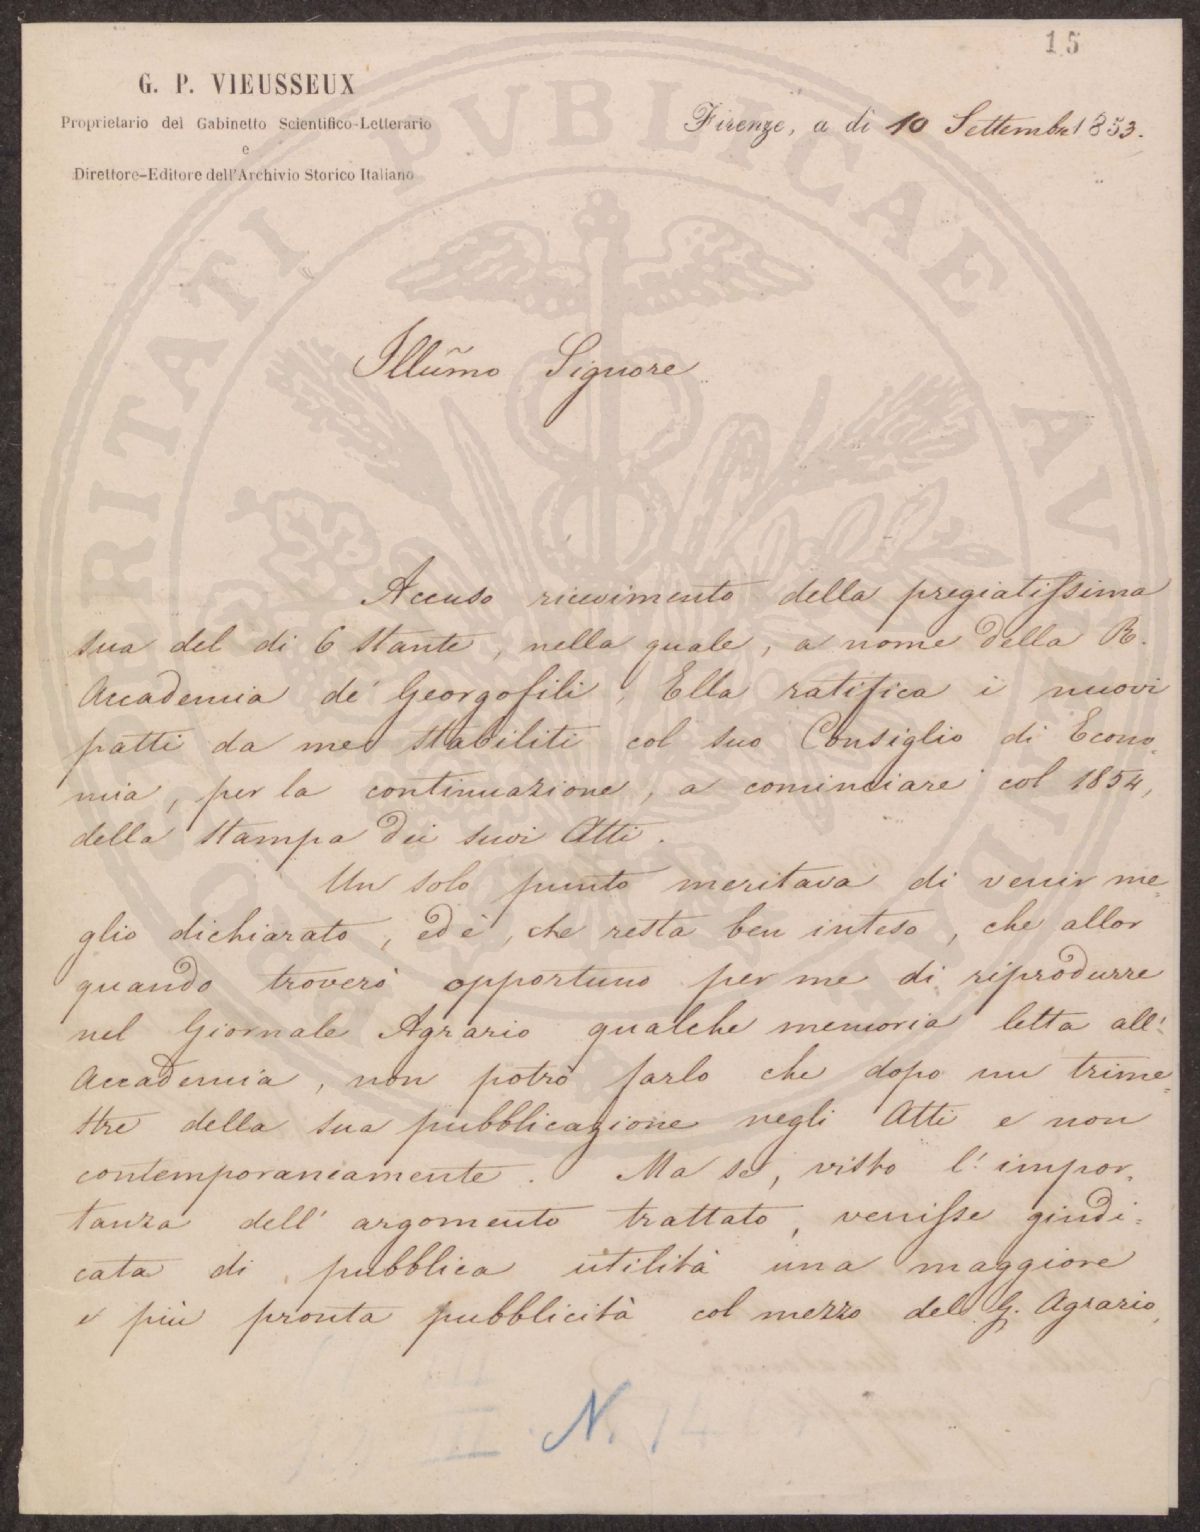 15
G. P. VIEUSSEUX
Proprietario del Gabinetto Scientifico-Letterario
e
Direttore-Editore dell'Archivio Storico Italiano
Firenze, a dì 10 Settembre 1853.
Illũmo Signore
Accuso ricevimento della pregiatissima
sua del dì 6 stante, nella quale, a nome della R.
Accademia de' Georgofili, Ella ratifica i nuovi
patti da me stabiliti col suo Consiglio di Econo=
mia, per la continuazione, a cominciare col 1854,
della stampa dei suoi Atti.
Un solo punto meritava di venir me=
glio dichiarato, ed è, che resta ben inteso, che allor
quando troverò opportuno per me di riprodurre
nel Giornale Agrario qualche memoria letta all'
Accademia, non potrò farlo che dopo un trime=
stre della sua pubblicazione negli Atti e non
contemporaneamente. Ma se, visto l'impor=
tanza dell'argomento trattato, venisse giudi=
cata di pubblica utilità una maggiore
e più pronta pubblicità col mezzo del G. Agrario,
N. 14